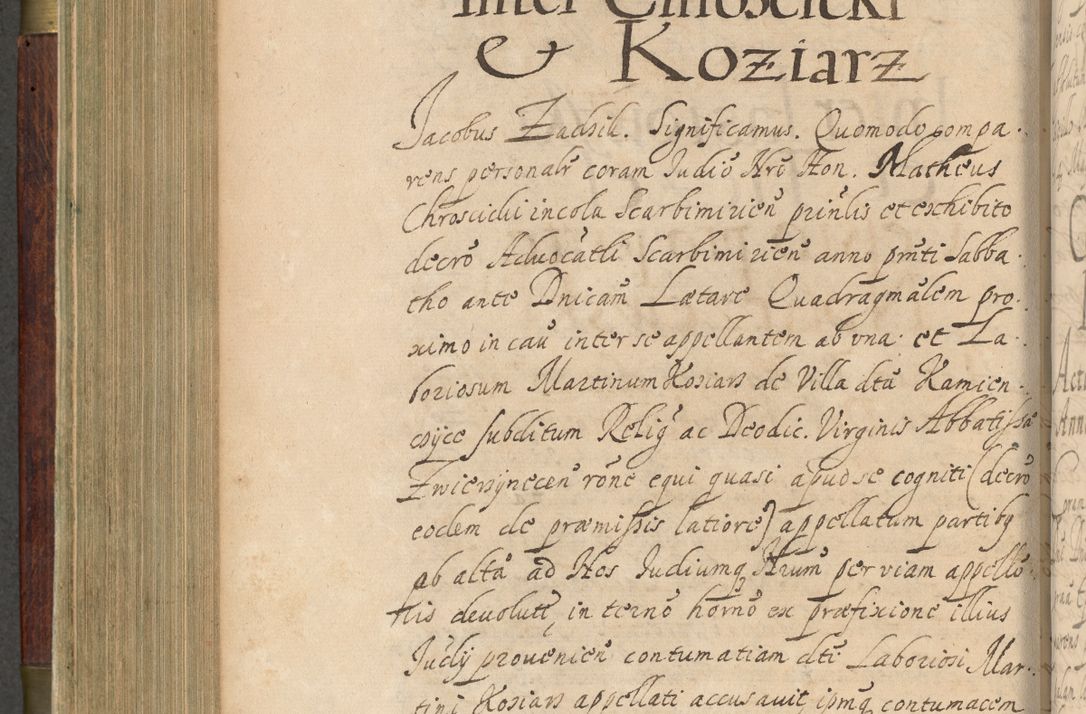 Inter Chroscicki
& Koziarz
Jacobus Zadzik. Significamus. Quomodo compa.
rens personalr coram Judiō Nrō Hon. Matheus
Chroscicki incola Scarbimirien̄ prin̄lis et exhibito
decrō Advocātli Scarbimirien̄ anno prn̄ti Sabba.
tho ante Dnicam̄ Lætare Quadragmālem pro.
ximo in cau̅ inter se appellantem ab vna et La.
boriosum Martinum Koziarz de Villa dtā Kamien.
czyce subditum Relig̃ ac Deodic. Virginis Abbatissæ
Zwierzynecen̄ rōne equi quasi apud se cogniti (decrō
eodem de præmissis latiore) appellatum partibq
ab altā ad Nos Judiumq Nrum̄ per viam appellō.
nis devolutē, in ternō hornō ex præfixione illius
Judij provenien̄ contumatiam dti Laboriosi Mar.
tini Koziarz appellati accusavit, ipmq contumacem